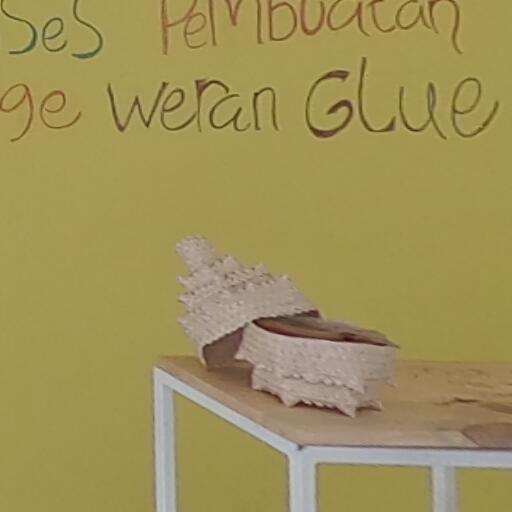 ses Pembuatan
ge weran GLue